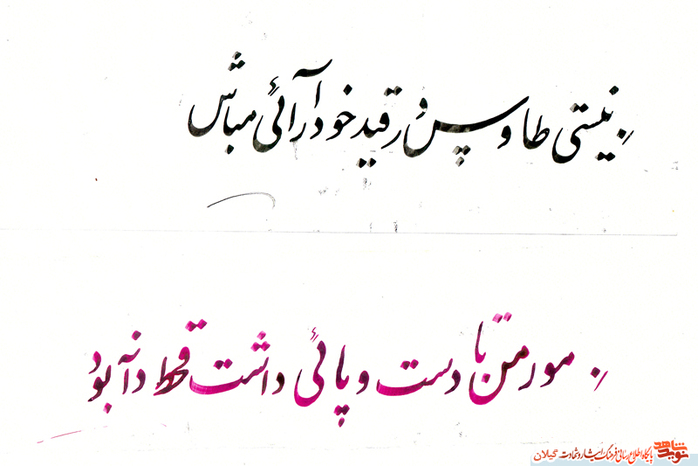 نیستی طاوس پس در قید خودآرائی مباش
مور من تا دست و پائی داشت قحط دانه بود
نوید شاهد
پایگاه اطلاع رسانی فرهنگ ایثار و شهادت گیلان